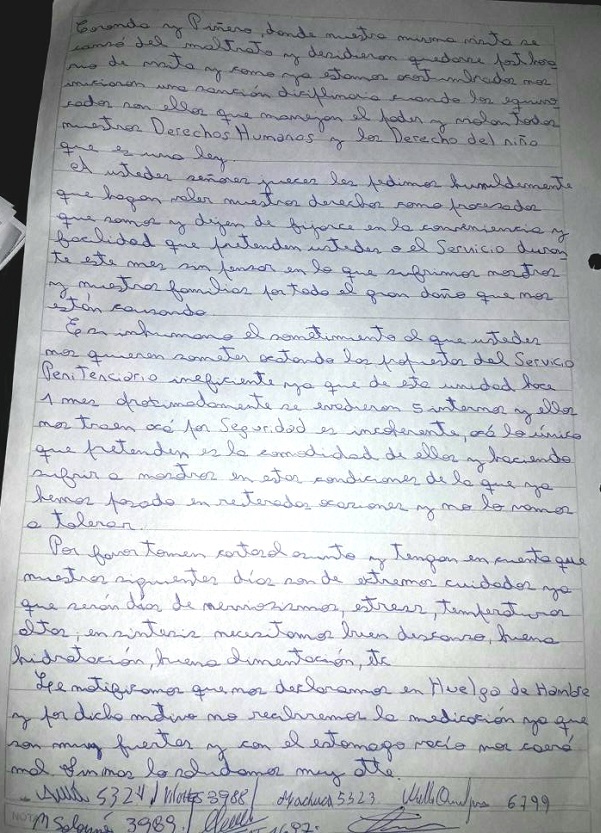 Coronda y Piñero, donde nuestra misma visita se
cansó del maltrato y decidieron quedarse
de visita y como ya estamos acostumbrados nos
iniciaron una sanción diciplinaria cuando los equivo
cados son ellos que manejan el poder y violan todos
nuestros Derechos Humanos y los Derecho del niño
que es una ley.
A ustedes señores jueces les pedimos humildemente
que hagan valer nuestros derechos como procesados
que somos y dejen de fijarce en la conveniencia y
facilidad que pretenden ustedes o el Servicio duran
te este mes sin pensar en lo que sufrimos nosotros
y nuestros familias por todo el gran daño que nos
están causando.
Es inhumano el sometimiento al que ustedes
nos quieren someter acatando las propuestas del Servicio
Penitenciario ineficiente ya que de esta unidad hace
1 mes aproximadamente se evadieron 5 internos y ellos
nos traen acá por Seguridad es incoherente, acá lo único
que pretenden es la comodidad de ellos y haciendo
sufrir a nosotros en estas condiciones de la que ya
hemos pasado en reiteradas ocasiones y no lo vamos
a tolerar.
Por favor tomen cartas al asunto y tengan en cuenta que
nuestros siguientes días son de extremos cuidados ya
que serán días de nerviosismos, estress, temperaturas
altas, en sintesis necesitamos buen descanso, buena
hidratación, buena alimentación, etc
Les notificamos que nos declaramos en Huelga de Hambre
y por dicho motivo no recibiremos la medicación ya que
son muy fuertes y con el estomago vacío nos caerá
mal. Sin mas lo saludamos muy atte.
5324 3988 Machuca 5323. 6799
3989. 1697.